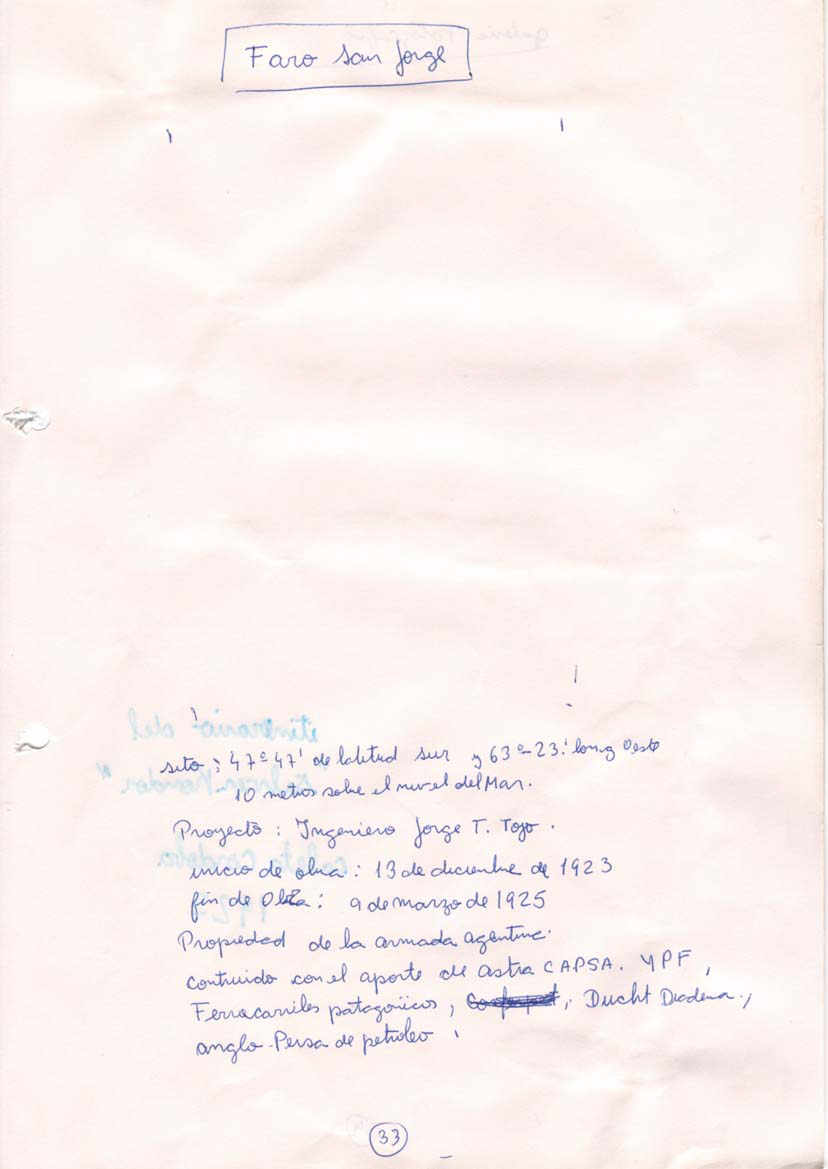 Faro San Jorge
sito : 47º 47' de latitud sur y 63º-23' long Oeste
10 metros sobre el nivel del Mar.
Proyecto : Ingeniero Jorge T. Togo .
inicio de obra : 13 de diciembre de 1923
fin de Obra : 9 de marzo de 1925
Propiedad de la armada agentina.
contruido con el aporte de astra CAPSA. YPF ,
Ferracarriles patagoicos , , Ducht Diadema. ,
anglo-Persa de petroleo .
33